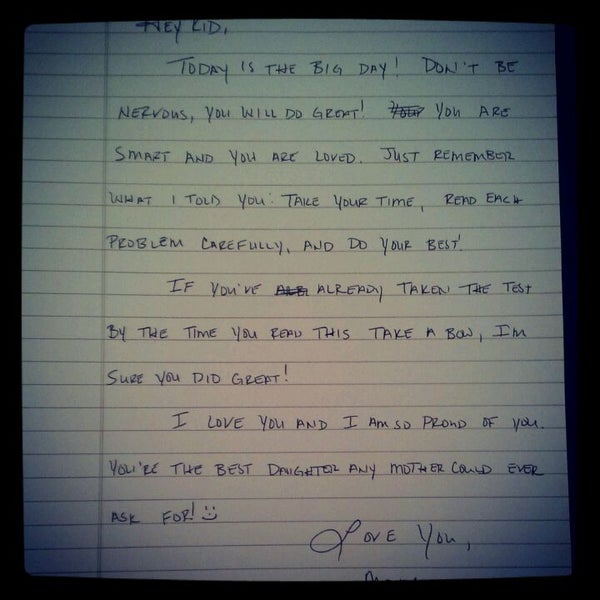 HEY KID,
TODAY IS THE BIG DAY! DON'T BE
NERVOUS, YOU WILL DO GREAT! YOU ARE
SMART AND YOU ARE LOVED. JUST REMEMBER
WHAT I TOLD YOU: TAKE YOUR TIME, READ EACH
PROBLEM CAREFULLY, AND DO YOUR BEST!
IF YOU'VE ALREADY TAKEN THE TEST
BY THE TIME YOU READ THIS TAKE A BOW, I'M
SURE YOU DID GREAT!
I LOVE YOU AND I AM SO PROUD OF YOU.
YOU'RE THE BEST DAUGHTER ANY MOTHER COULD EVER
ASK FOR! :)
LOVE YOU,